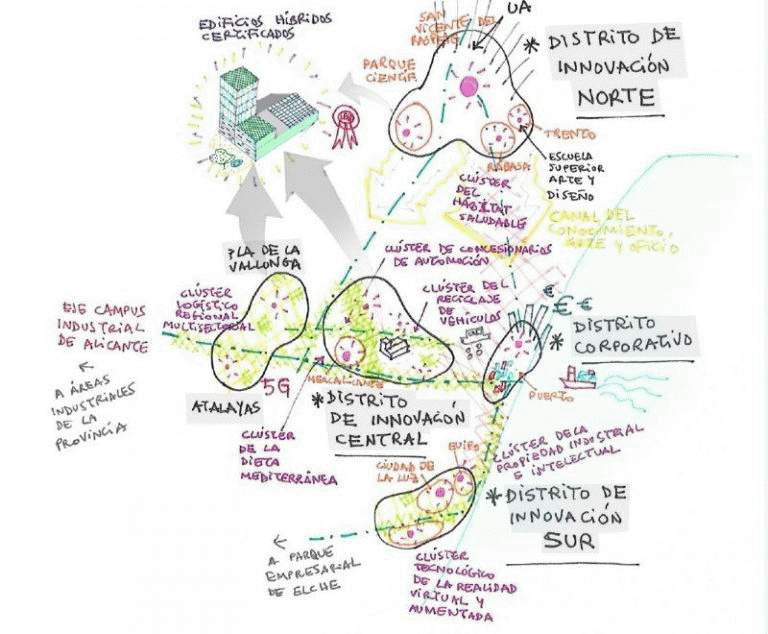 EDIFICIOS HÍBRIDOS
CERTIFICADOS
SAN
VICENTE DEL
RASPEIG
UA
* DISTRITO DE
INNOVACIÓN
NORTE
PARQUE
CIENTÍF
TRENTO
RABASA
ESCUELA
SUPERIOR
ARTE Y
DISEÑO
CLÚSTER
DEL
HÁBITAT
SALUDABLE
CANAL DEL
CONOCIMIENTO,
ARTE Y OFICIO
PLA DE LA
VALLONGA
CLÚSTER DE CONCESIONARIOS
DE AUTOMOCIÓN
CLÚSTER
LOGÍSTICO
REGIONAL
MULTISECTORIAL
CLÚSTER DEL
RECICLAJE
DE
VEHÍCULOS
€ € €
EJE CAMPUS
INDUSTRIAL
DE ALICANTE
* DISTRITO
CORPORATIVO
A ÁREAS
INDUSTRIALES
DE LA
PROVINCIA
5G
MERCALICANTE
PUERTO
ATALAYAS
* DISTRITO
DE INNOVACIÓN
CENTRAL
CLÚSTER
DE LA
DIETA
MEDITERRÁNEA
CLÚSTER DE LA
PROPIEDAD INDUSTRIAL
E INTELECTUAL
CIUDAD DE
LA LUZ
* DISTRITO DE
INNOVACIÓN
SUR
A PARQUE
EMPRESARIAL
DE ELCHE
CLÚSTER
TECNOLÓGICO
DE LA REALIDAD
VIRTUAL Y
AUMENTADA